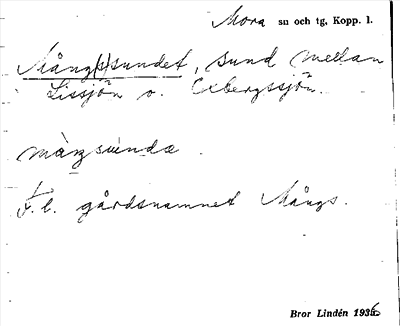 Mora su och tg, Kopp. l.
Mång(s)sundet, sund mellan
Lissjön o. Exbergssjön.
màŋsùnda.
F.l. gårdsnamnet Mångs.
Bror Lindén 1936